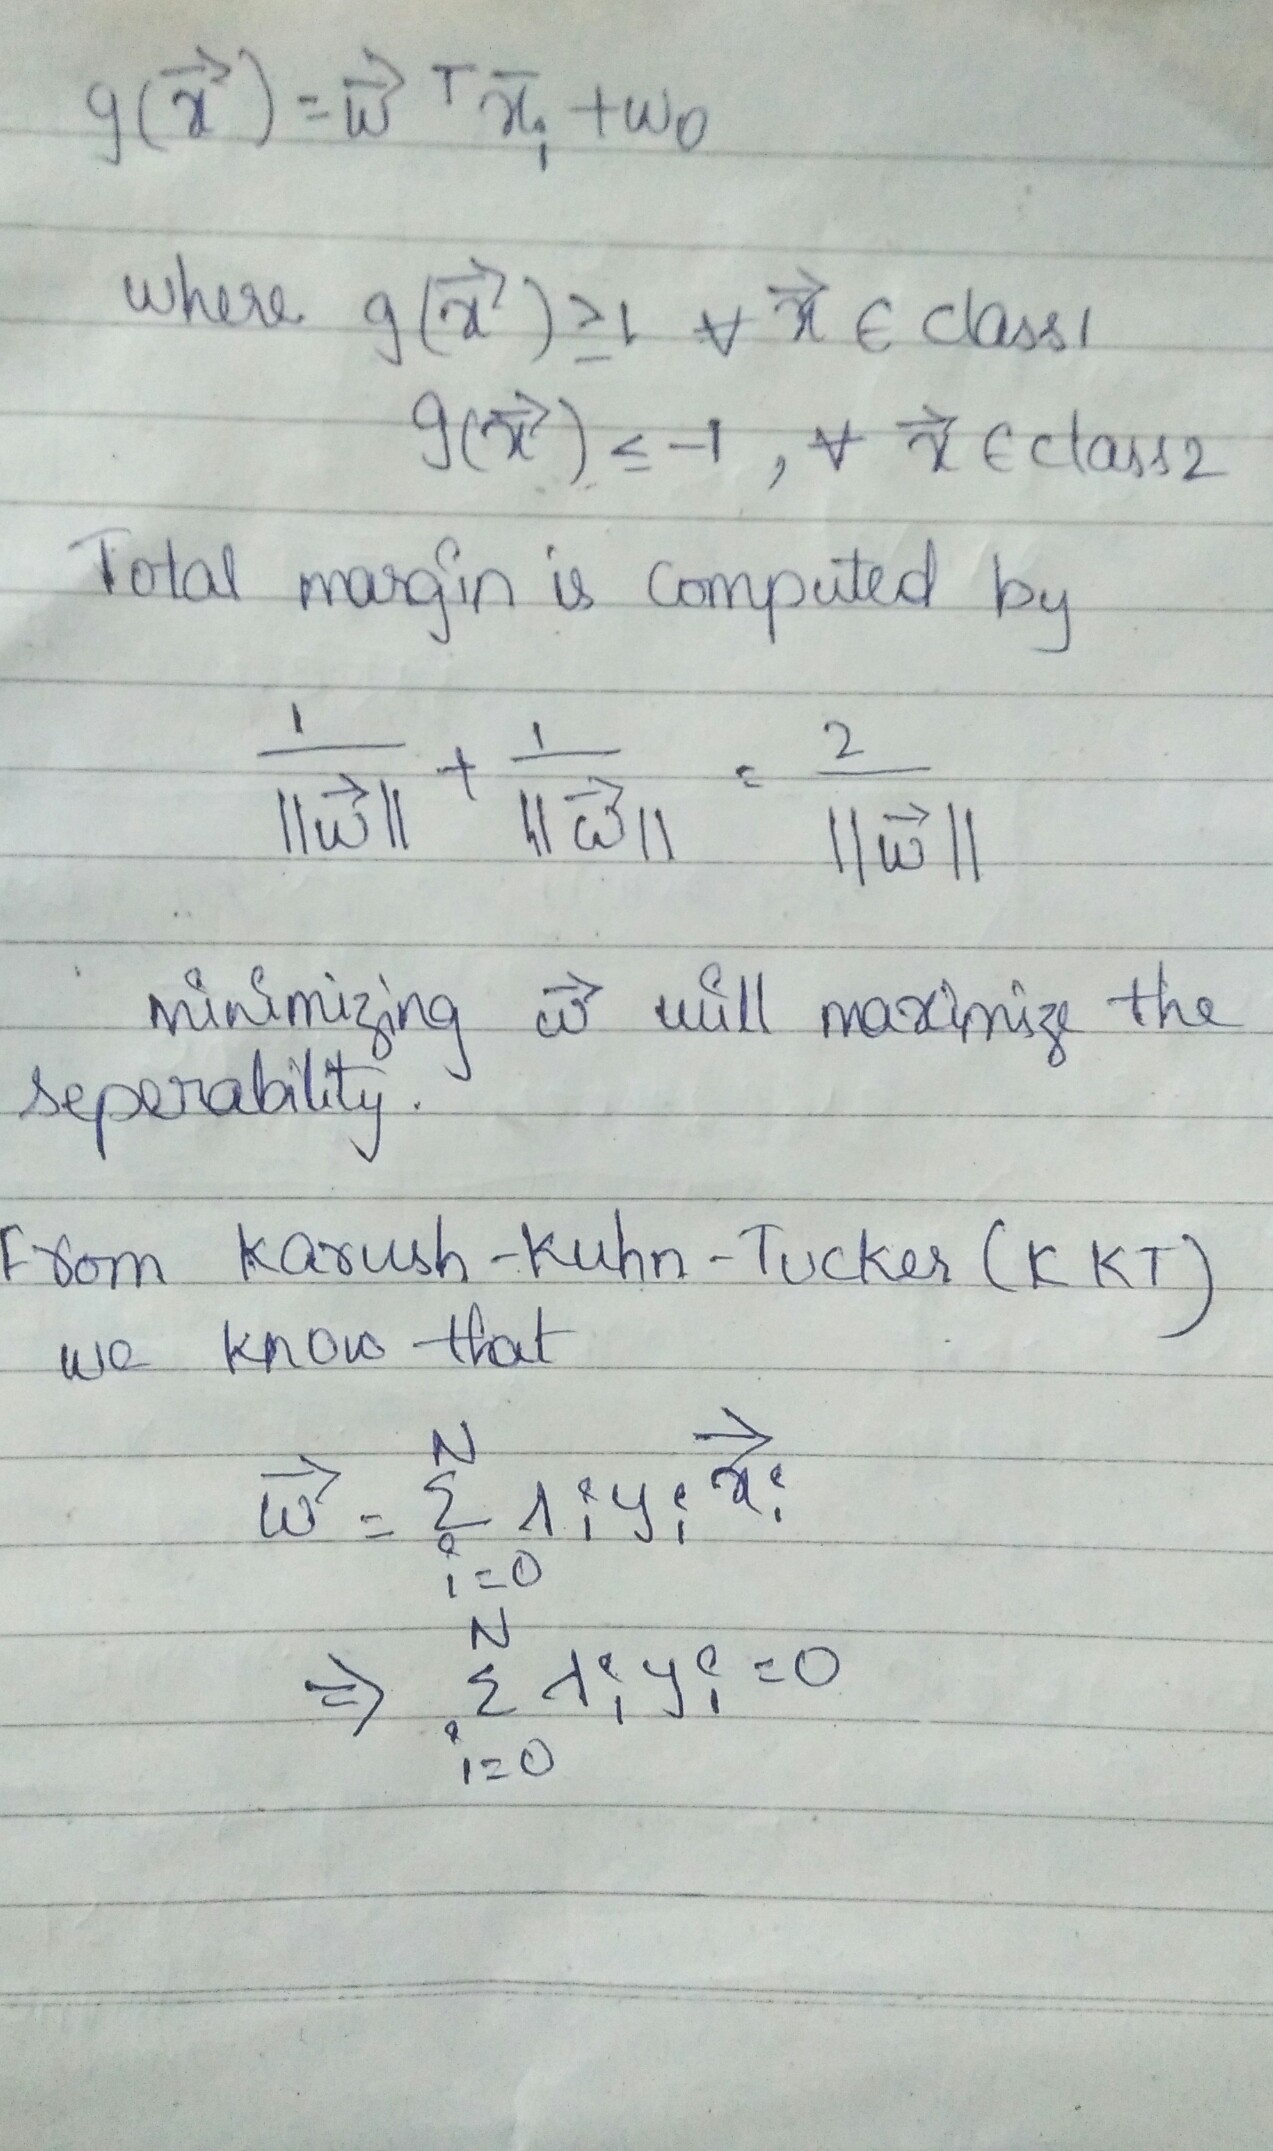 g(x⃗) = w⃗ᵀ x̄ᵢ + w₀
where g(x⃗) ≥ 1 ∀ x⃗ ∈ class 1
g(x⃗) ≤ -1, ∀ x⃗ ∈ class 2
Total margin is computed by
1/||w⃗|| + 1/||w⃗|| = 2/||w⃗||
minimizing w⃗ will maximize the
seperability.
From Karush-Kuhn-Tucker (KKT)
we know that
w⃗ = Σ_{i=0}^{N} λᵢ yᵢ x⃗ᵢ
⇒ Σ_{i=0}^{N} λᵢ yᵢ = 0